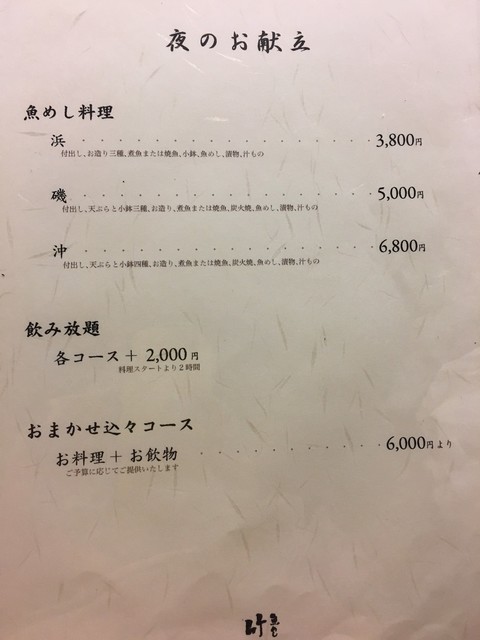 夜のお献立
魚めし料理
浜 3,800円
付出し、お造り三種、煮魚または焼魚、小鉢、魚めし、漬物、汁もの
磯 5,000円
付出し、天ぷらと小鉢三種、お造り、煮魚または焼魚、炭火焼、魚めし、漬物、汁もの
沖 6,800円
付出し、天ぷらと小鉢四種、お造り、煮魚または焼魚、炭火焼、魚めし、漬物、汁もの
飲み放題
各コース＋2,000円
料理スタートより2時間
おまかせ込々コース
お料理＋お飲物 6,000円より
ご予算に応じてご提供いたします
魚めし